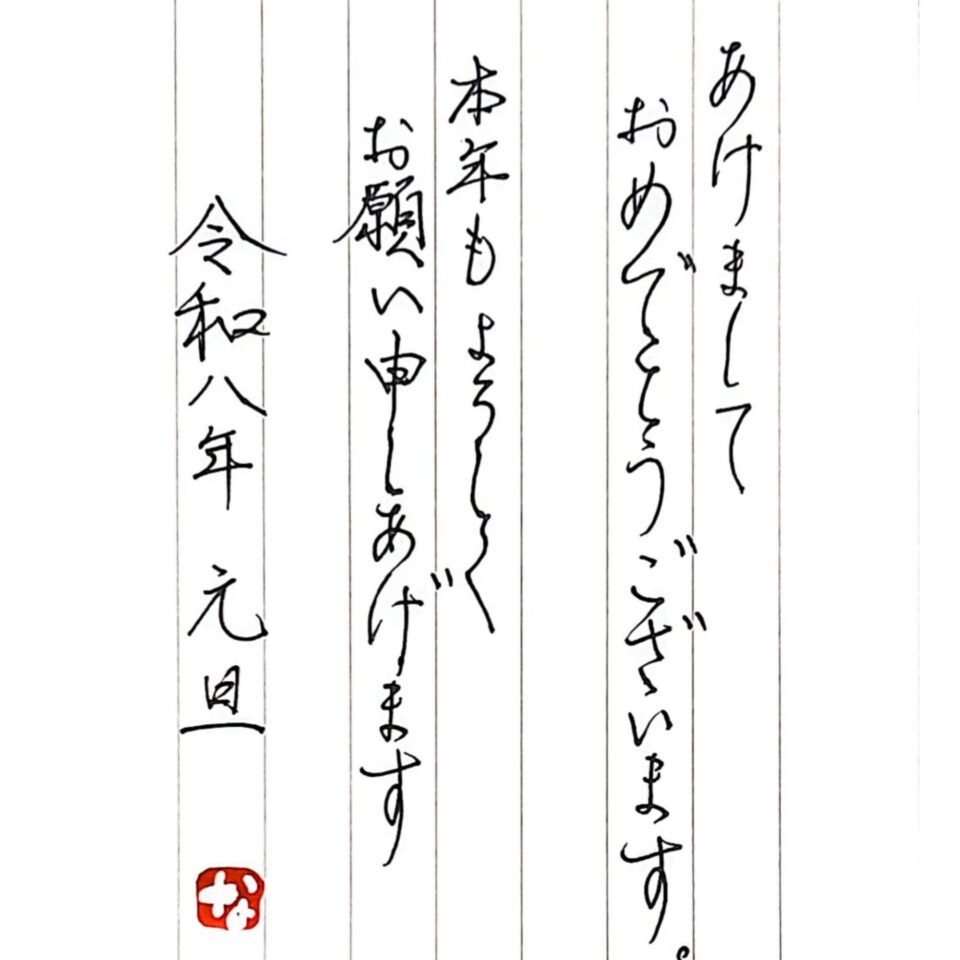 あけまして
おめでとうございます。
本年もよろしく
お願い申しあげます
令和八年 元旦
な